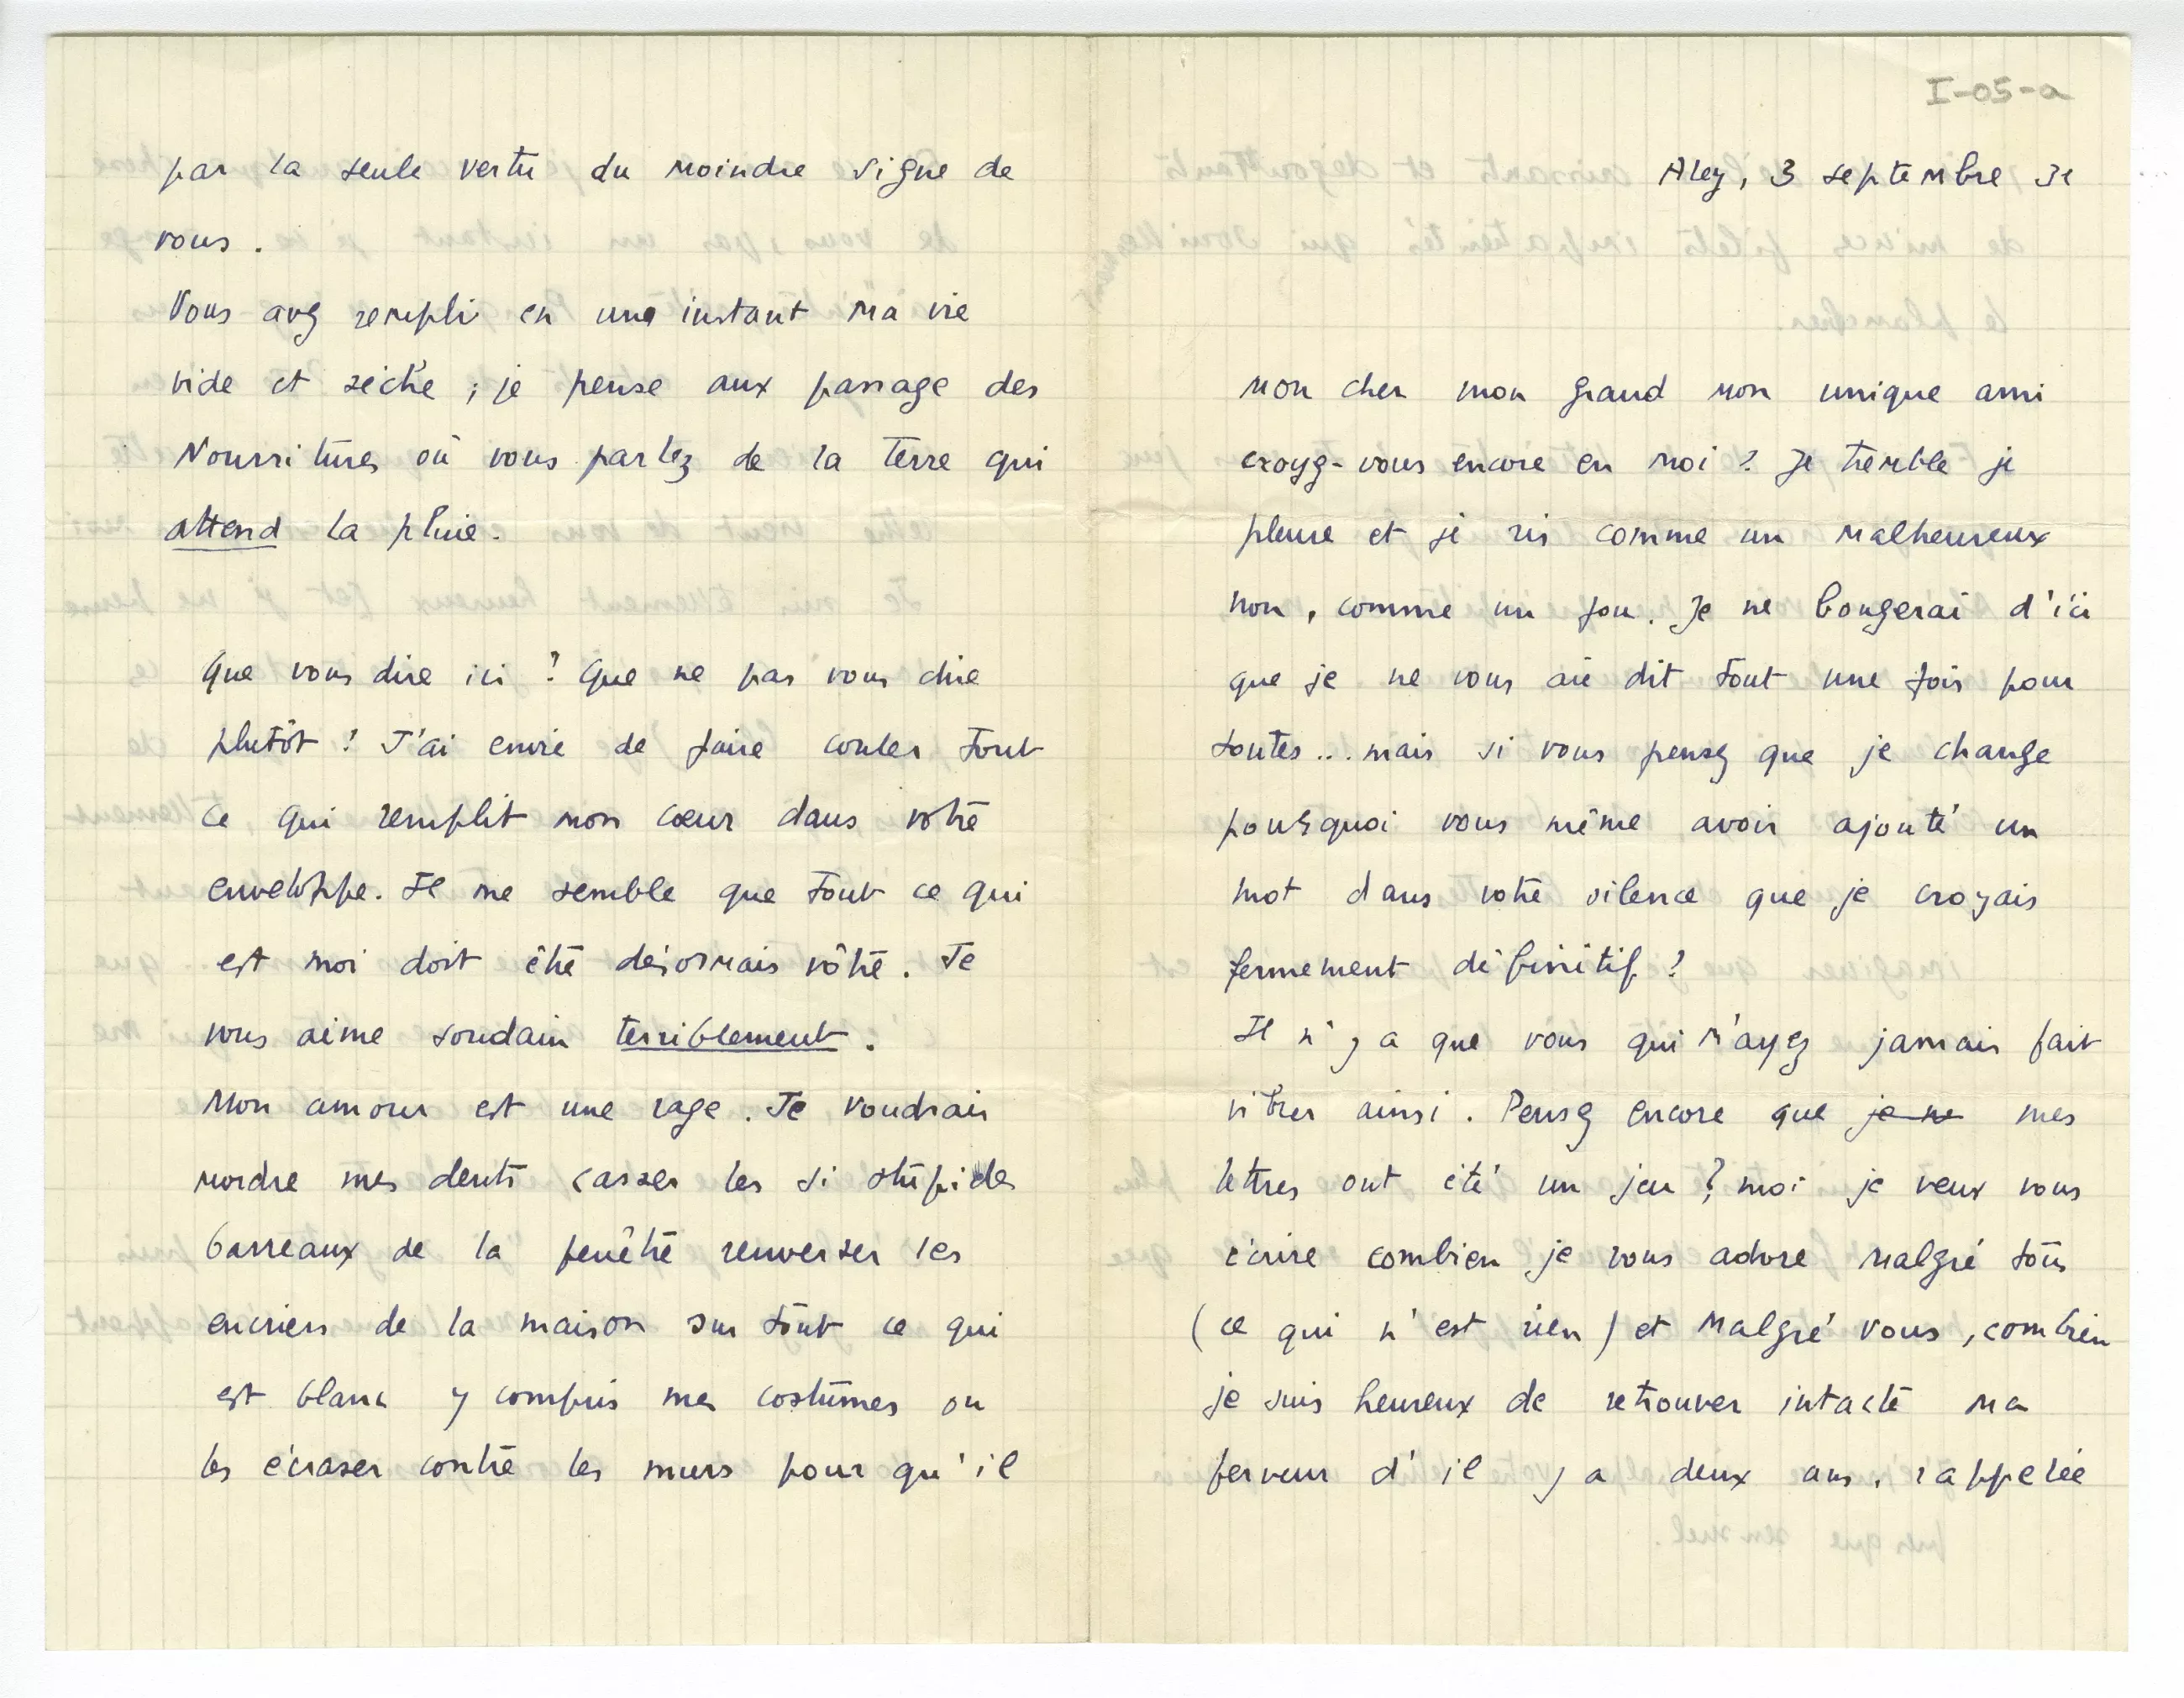 I-05-a
Aley, 3 septembre 31
mon cher mon grand mon unique ami
croyez-vous encore en moi ? Je tremble je
pleure et je ris comme un malheureux
non, comme un fou. Je ne bougerai d'ici
que je ne vous aie dit tout une fois pour
toutes... mais si vous pensez que je change
pourquoi vous même avoir ajouté un
mot dans votre silence que je croyais
fermement définitif ?
Il n'y a que vous qui m'ayez jamais fait
vibrer ainsi. Pensez encore que je ne mes
lettres ont été un jeu ? moi je veux vous
écrire combien je vous adore malgré tous
(ce qui n'est rien) et malgré vous, combien
je suis heureux de retrouver intacte ma
ferveur d'il y a deux ans, rappelée
par la seule vertu du moindre signe de
vous.
Vous avez rempli en une instant ma vie
vide et sèche ; je pense aux passage des
Nourritures où vous parlez de la terre qui
attend la pluie.
Que vous dire ici ? Que ne pas vous dire
plutôt ? J'ai envie de faire couler tout
ce qui remplit mon cœur dans votre
enveloppe. Il me semble que tout ce qui
est moi doit être désormais vôtre. Je
vous aime soudain terriblement.
Mon amour est une rage. Je voudrais
mordre mes dents casser les si stupides
barreaux de la fenêtre renverser les
encriers de la maison sur tout ce qui
est blanc y compris mes costumes ou
les écraser contre les murs pour qu'il